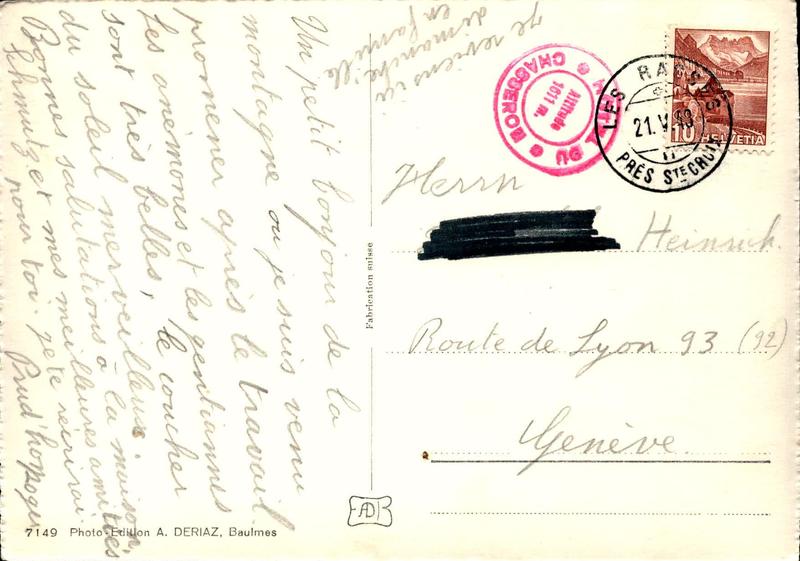 Un petit bonjour de la
montagne ou je suis venu
promener après le travail.
Les anémones et les gentiannes
sont très belles, le coucher
du soleil merveilleux.
Bonnes salutations à la maison
Schmutz et mes meilleures amitiés
pour toi. je te
Prud'ho Roger
je reviens ici
dimanche
en famille
HOTEL DU CHASSERON
Altitude
1611 m.
LES RASSES
21.V.
11
PRÈS STE CROIX
10 HELVETIA
Herrn
Heinrich
Route de Lyon 93 (92)
Genève.
Fabrication suisse
AD
7149 Photo-Edition A. DERIAZ, Baulmes